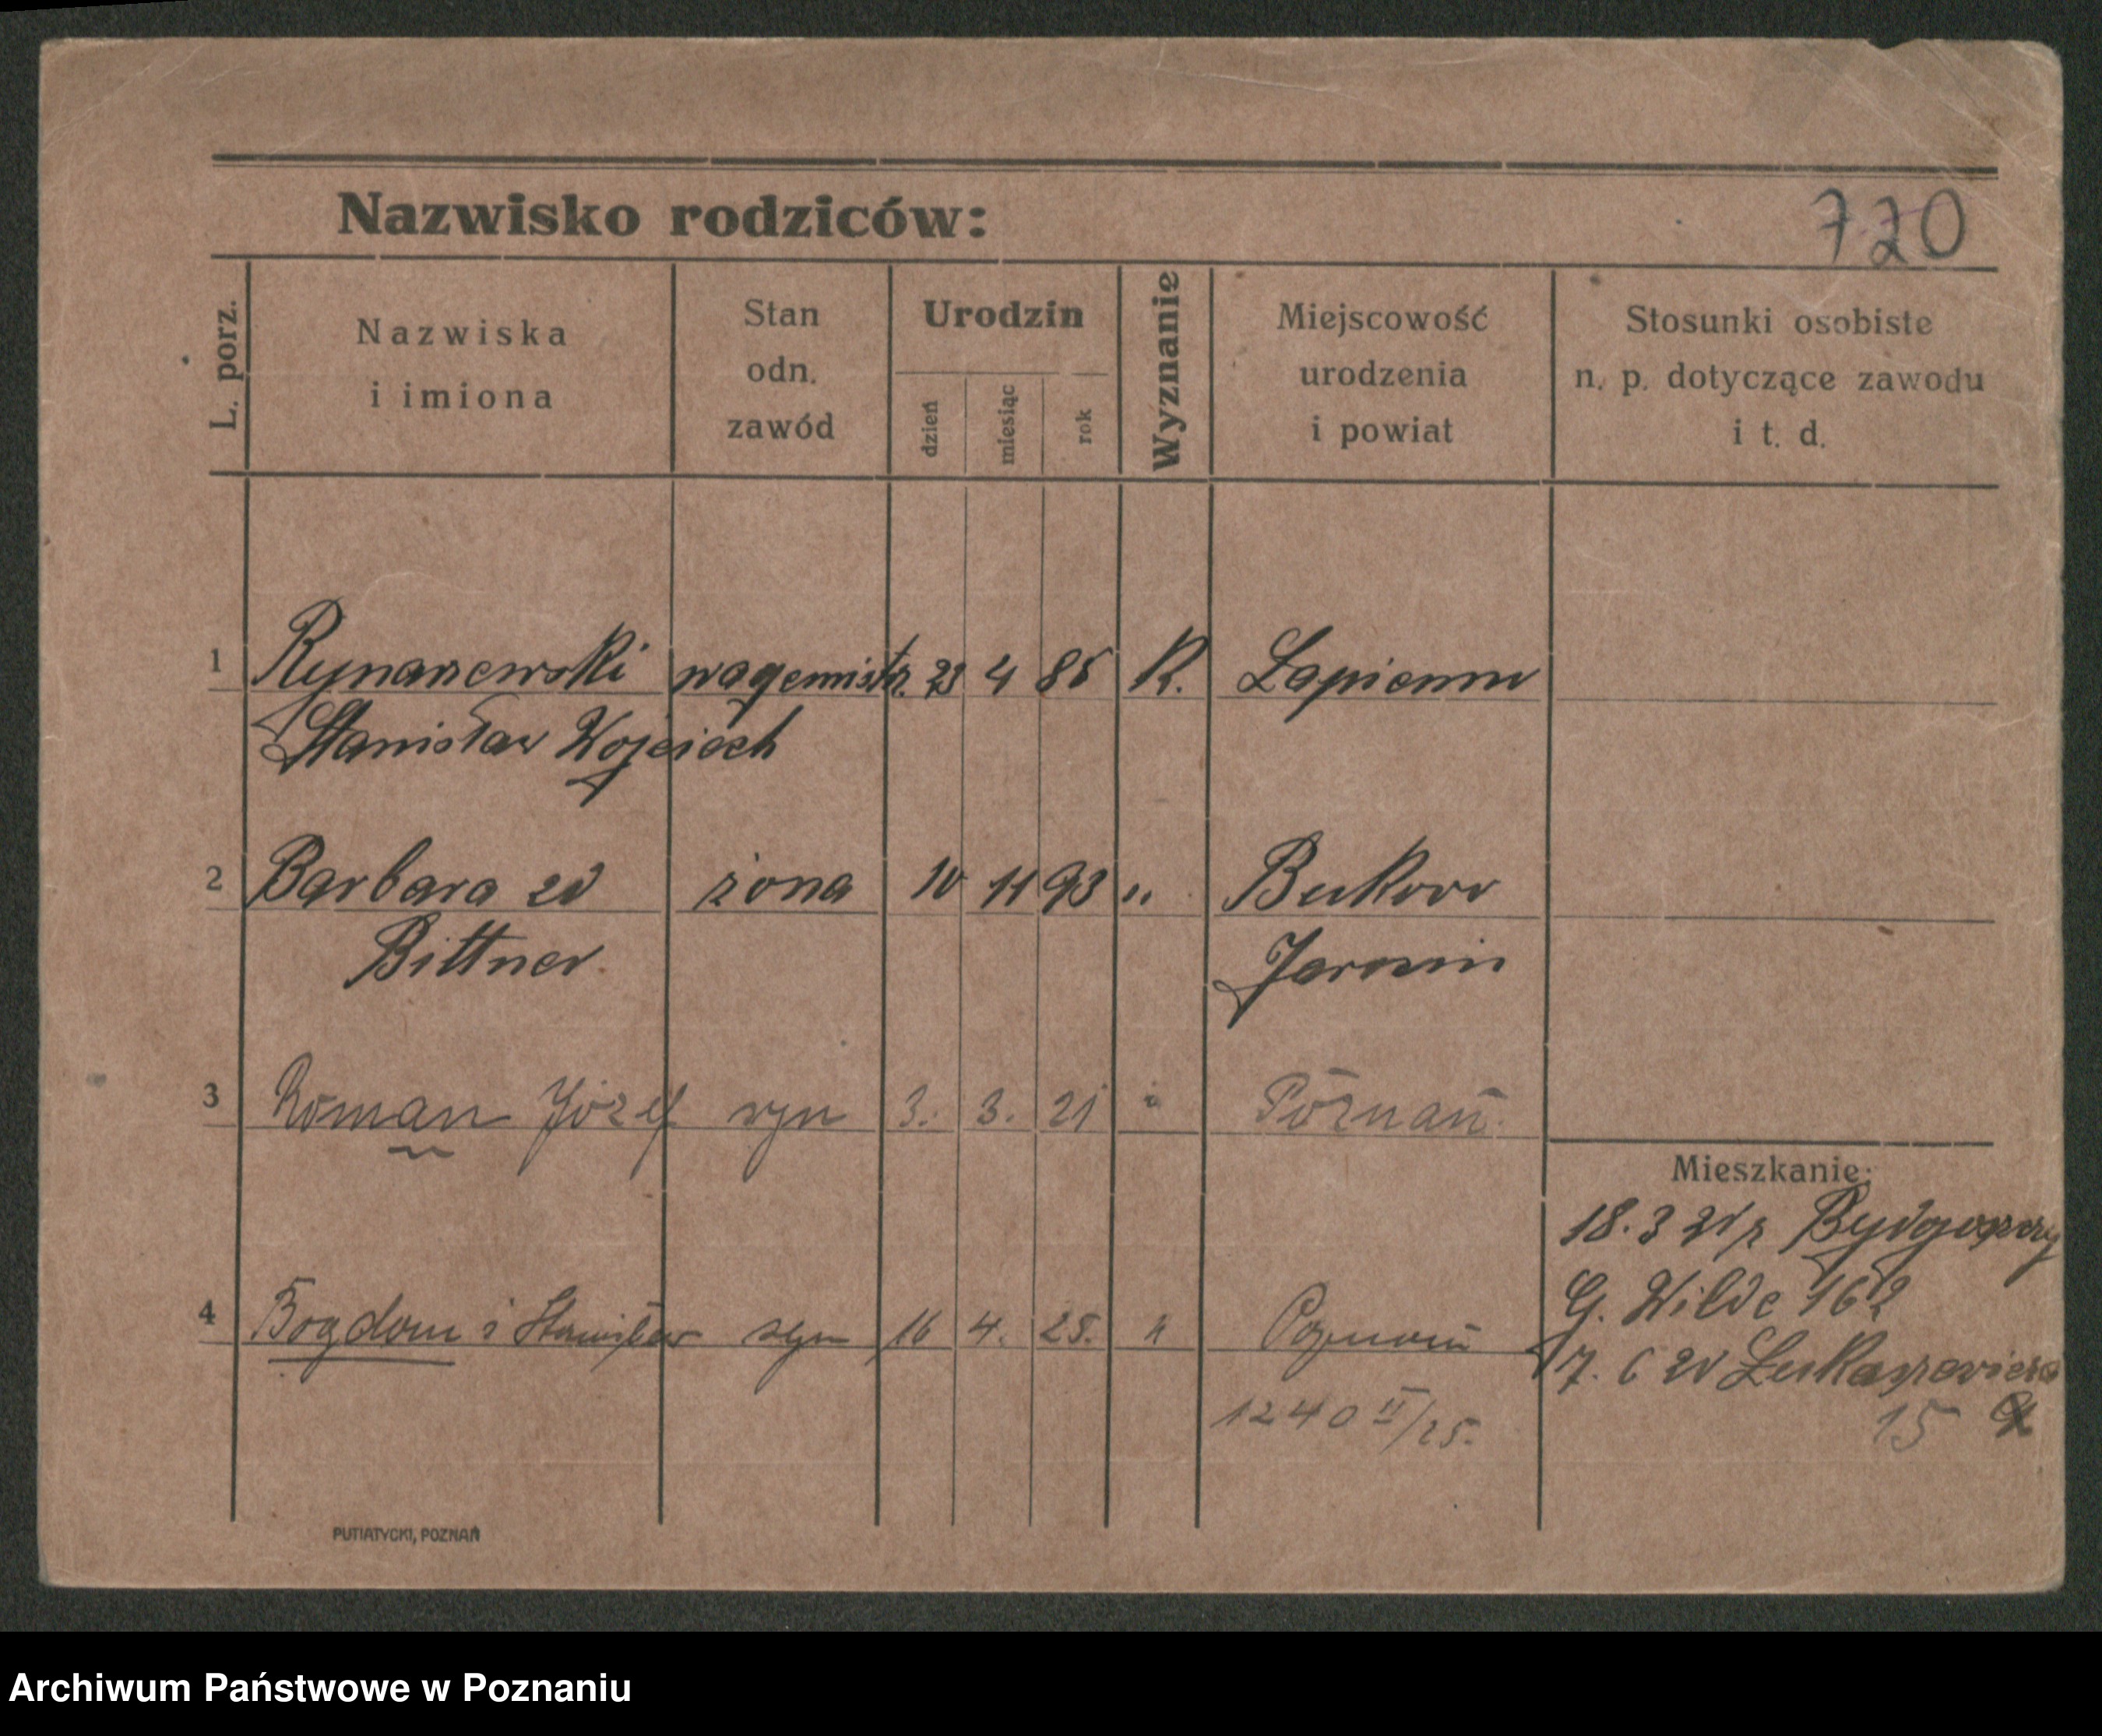 Nazwisko rodziców:
720
L. porz.
Nazwiska
i imiona
Stan
odn.
zawód
Urodzin
dzień
miesiąc
rok
Wyznanie
Miejscowość
urodzenia
i powiat
Stosunki osobiste
n. p. dotyczące zawodu
i t. d.
1 Rynarzewski wagemistrz. 23 4 85 R. Łapienno
Stanisław Wojciech
2 Barbara zd żona 10 11 93 "
Bukow
Bittner
Jarocin
3 Roman Józef syn 3. 3. 21 " Poznań.
4 Bogdan i Stanisław syn 16 4. 25. " Poznań
1240 II/25.
Mieszkanie:
18. 3 21 z Bydgoszczy
G. Wilde 16
7. 6 21 Łukaszewicza
15
PUTIATYCKI, POZNAŃ
Archiwum Państwowe w Poznaniu